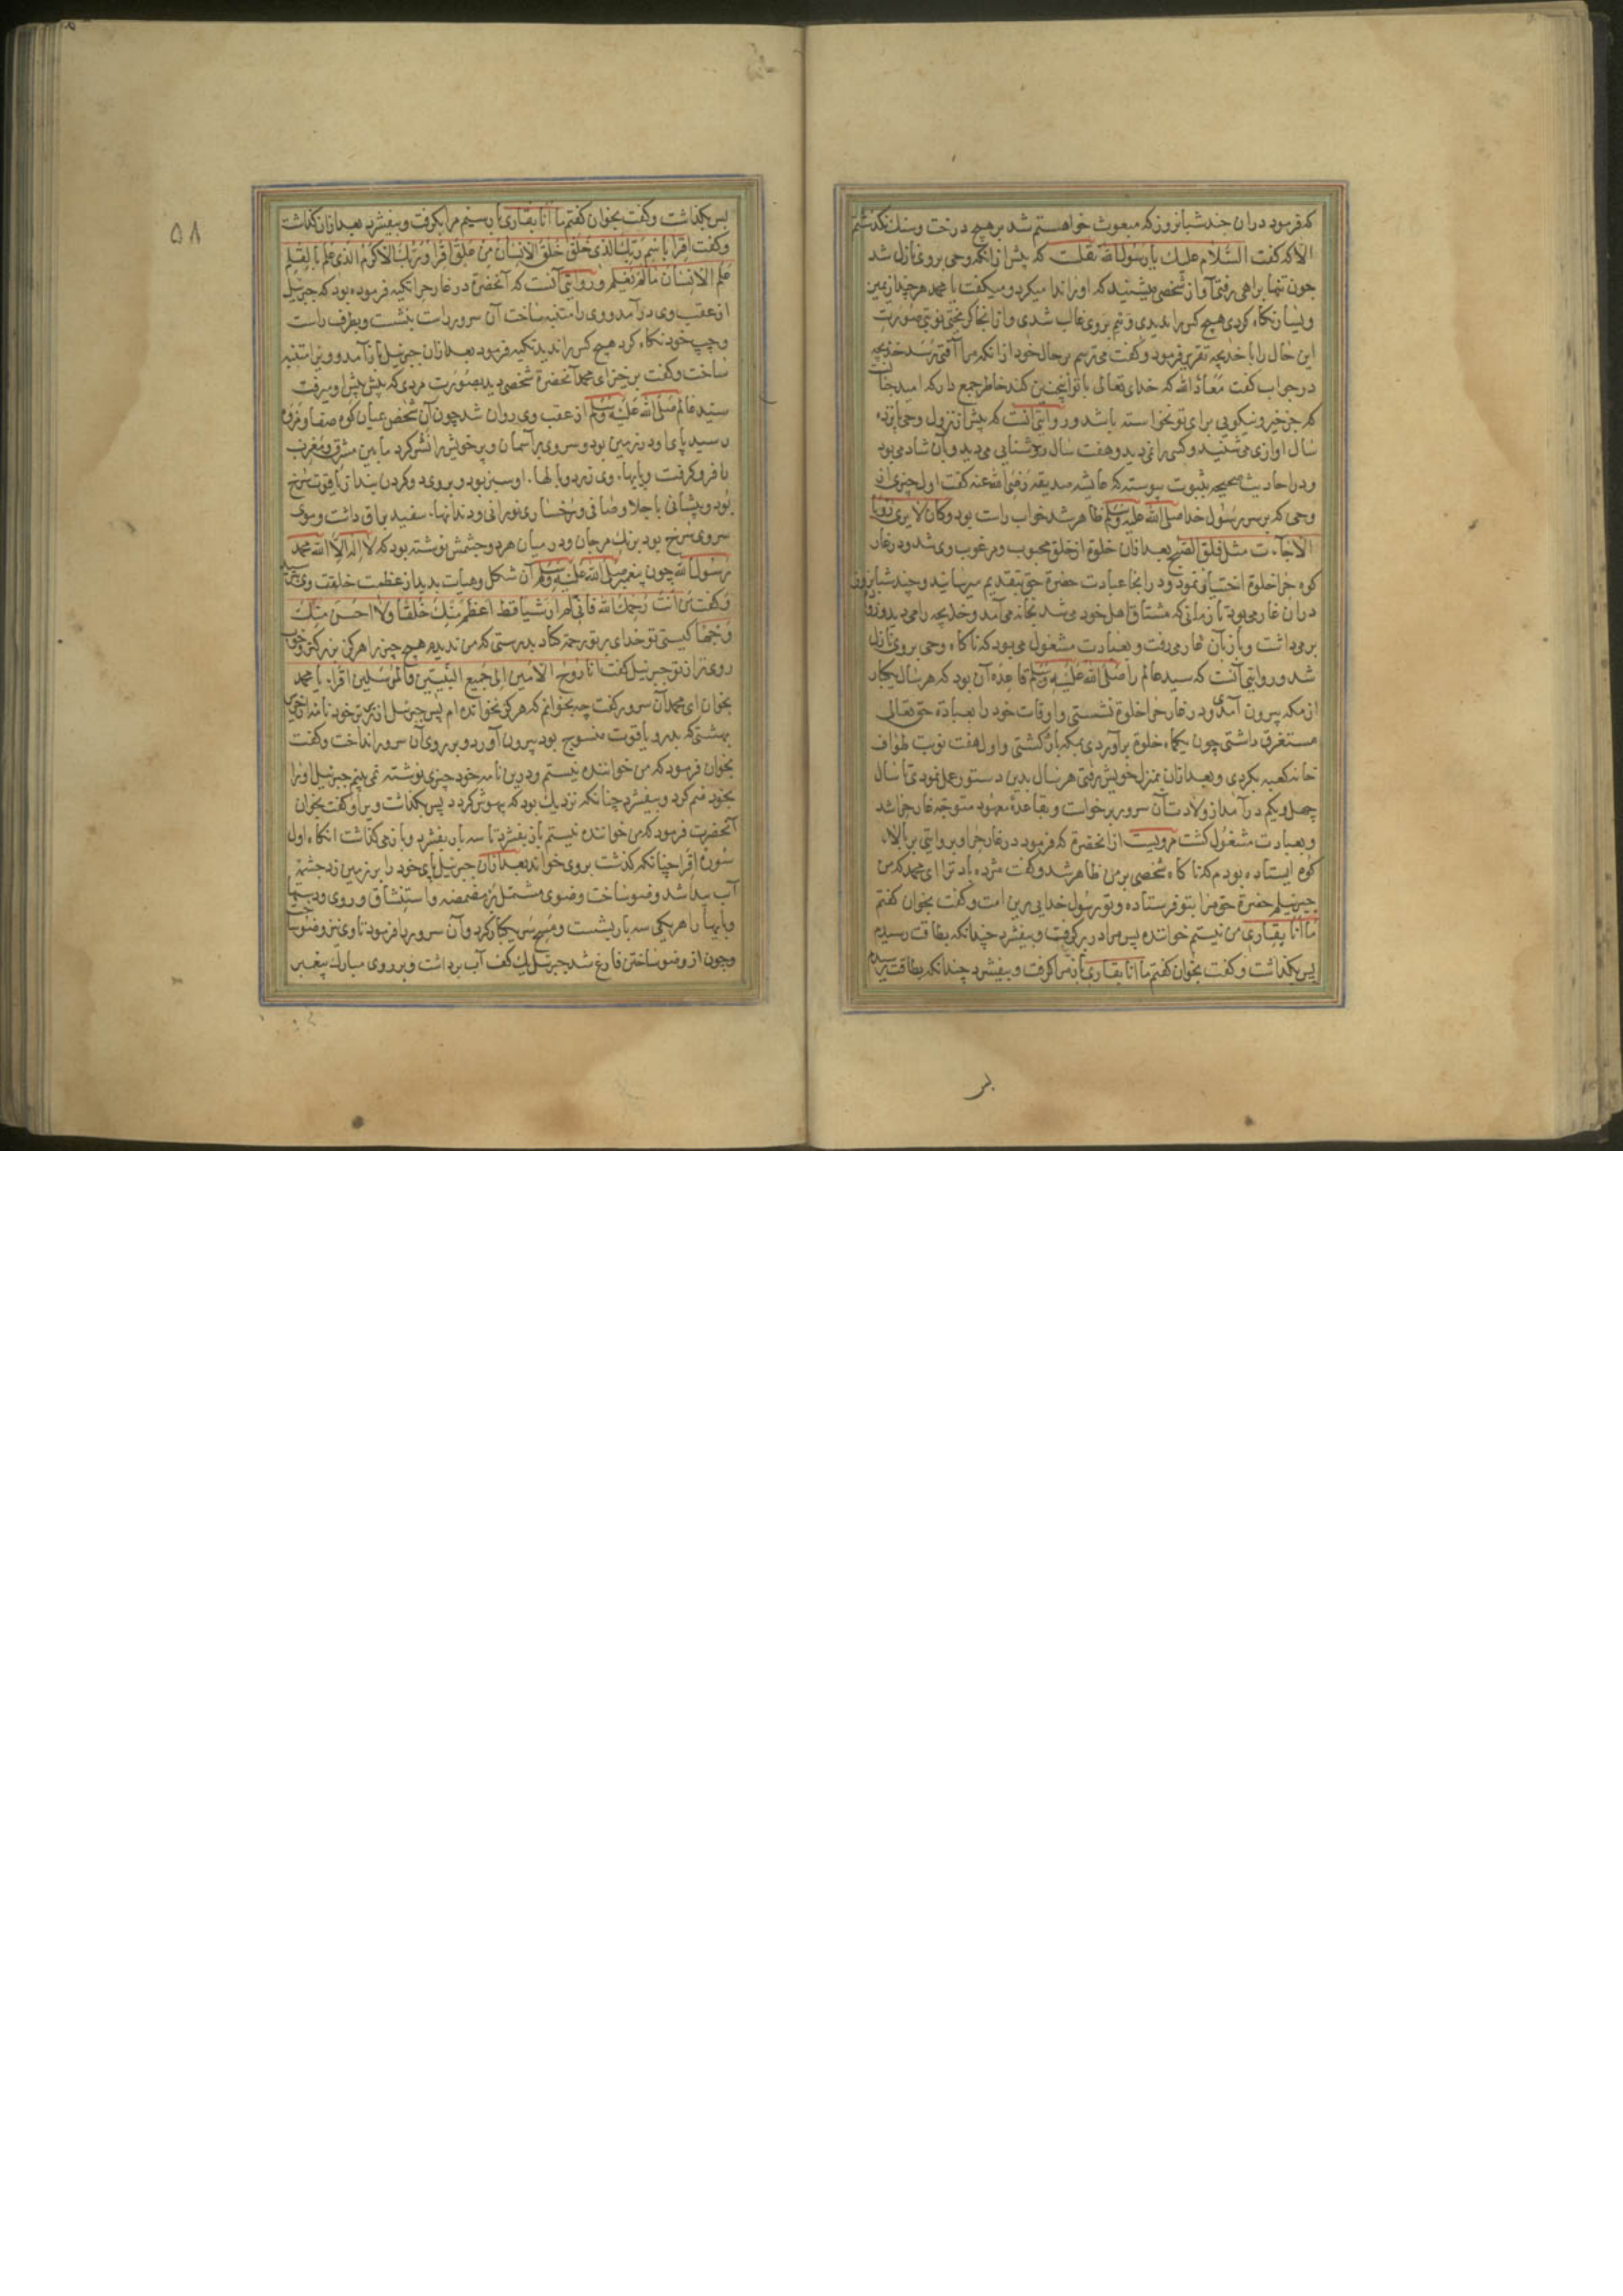 که فرمود دران چند شبانروز که مبعوث خواهستم شد بر هیچ درخت و سنك نکذشتم
الا که کفت السلام علیك یا رسول الله نقلست که پیش ازانکه وحی بروی نازل شد
چون تنها براهی رفتی آواز شخصی میشنید که اورا ندا میکرد و میکفت یا محمد هرچند از یمین
و یسار نکاه کردی هیچ کس را ندیدی وهم بر وی غالب شدی و از انجا کریختی نوبتی صورت
این حال را با خدیجه تقریر فرمود و کفت می ترسم بر حال خود از انکه مرا آفتی رسد خدیجه
در جواب کفت معاذ الله که خدای تعالی با تو اینچنین کند خاطر جمع دار که امید چنانست
که جز خیر و نیکویی برای تو نخواسته باشد و روایتی آنست که پیش از نزول وحی پانزده
سال اوازی می شنید و کسی را نمی دید و هفت سال روشنایی می دید و بان شاد می بود
و در احادیث صحیحه بثبوت پیوسته که عایشه صدیقه رضی الله عنه کفت اول چیزی از
وحی که بر رسول خدا صلی الله علیه وسلم ظاهر شد خواب راست بود وکان لا یری رؤیا
الا جآءت مثل فلق الصبح بعد ازان خلوة از خلق محبوب و مرغوب وی شد و در غار
کوه حرا خلوة اختیار نمود و در انجا عبادت حضرة حق بتقدیم میرسانید و چند شبانروز
دران غار می بود تا زمانی که مشتاق اهل خود می شد بخانه می آمد و خدیجه را می دید و زوادة
بر می داشت و باز بآن غار می رفت و بعبادت مشغول می بود که ناکاه وحی بروی نازل
شد و روایتی آنست که سید عالم را صلی الله علیه وسلم قاعده آن بود که هر سال یکبار
از مکه بیرون آمدی و در غار حرا خلوة نشستی و اوقات خود را بعبادة حق تعالی
مستغرق داشتی چون یکماه خلوة برآوردی بمکه باز کشتی و اول هفت نوبت طواف
خانه کعبه بکردی و بعد ازان بمنزل خویش رفتی هر سال بدین دستور عمل نمودی تا سال
چهل و یکم درآمد از ولادت آن سرور برخواست و بقاعدة معهود متوجه غار حرا شد
و بعبادت مشغول کشت مرویست از انحضرة که فرمود در غار حرا و بروایتی بر بالاء
کوه ایستاده بودم که ناکاه شخصی بر من ظاهر شد و کفت مژده باد ترا ای محمد که من
جبرئیلم حضرة حق مرا بتو فرستاده و تو رسول خدایی برین امت و کفت بخوان کفتم
ما انا بقاری من نیستم خواننده پس مرا در بر کرفت و بیفشرد چندانکه بطاقت رسیدم
پس بکذاشت و کفت بخوان کفتم ما انا بقاری باز مرا کرفت و بیفشرد چندانکه بطاقت رسیدم
۵۸
پس بکذاشت و کفت بخوان کفتم ما انا بقاری بار سیم مرا بکرفت و بیفشرد بعد ازان کذاشت
و کفت اقرا باسم ربك الذی خلق خلق الانسان من علق اقرا وربك الاکرم الذی علم بالقلم
علم الانسان ما لم یعلم و روایتی آنست که آنحضرة در غار حرا تکیه فرموده بود که جبرئیل
از عقب وی درآمد و وی را متنبه ساخت آن سرور راست بنشست و بطرف راست
و چپ خود نکاه کرد هیچ کس را ندید تکیه فرمود بعد ازان جبرئیل باز آمد و ویرا متنبه
ساخت و کفت برخیز ای محمد آنحضرة شخصی دید بصورت مردی که پیش پیش او میرفت
سید عالم صلی الله علیه وسلم از عقب وی روان شد چون آن شخص عیان کوه صفا و مروه
رسید پای او در زمین بود و سر وی بر آسمان و پر خویش را نشر کرد ما بین مشرق و مغرب
را فرو کرفت و پایهاء وی زرد و بالهاء او سبز بود و بر وی دو کردن بند از یاقوت سرخ
بود و پیشانی با جلا و صافی و رخساری نورانی و دندانهاء سفید براق داشت و موی
سر وی سرخ بود برنك مرجان و در میان هر دو چشمش نوشته بود که لا اله الا الله محمد
رسول الله چون پیغمبر صلی الله علیه وسلم آن شکل و هیات بدید از عظمت خلقت وی
و کفت من انت رحمك الله فانی لم ار شیا قط اعظم منك خلقا ولا احسن منك
وجها کیستی تو خدای بر تو رحمة کناد بدرستی که من ندیدم هیچ چیز را هرکز بزرکتر و خوب
روی تر از تو جبرئیل کفت انا روح الامین الی جمیع النبیین والمرسلین اقراء یا محمد
بخوان ای محمد آن سرور کفت چه بخوانم که هرکز نخوانده ام پس جبرئیل از زیر پر خود نامه از حریر
بهشتی که بدر و یاقوت منسوج بود بیرون آورد و بر روی آن سرور انداخت و کفت
بخوان فرمود که من خواننده نیستم و درین نامه خود چیزی نوشته نمی بینم جبرئیل اورا
بخود ضم کرد و بیفشرد چنانکه نزدیك بود که بیهوش کردد پس بکذاشت ویرا و کفت بخوان
آنحضرت فرمود که من خواننده نیستم باز بفشرد تا سه بار بفشرد و باز می کذاشت انکاه اول
سوره اقرا چنانکه کذشت بر وی خواند بعد ازان جبرئیل پای خود را بر زمین زد چشمة
آب پیدا شد وضو ساخت وضوی مشتمل بر مضمضه و استنشاق و روی و دستها
و پایها را هر یکی سه بار بشست و مسح سر یکبار کرد و آن سرور را فرمود تا وی نیز وضو ساخت
و چون از وضو ساختن فارغ شد جبرئیل یك کف آب برداشت و بر روی مبارك پیغمبر